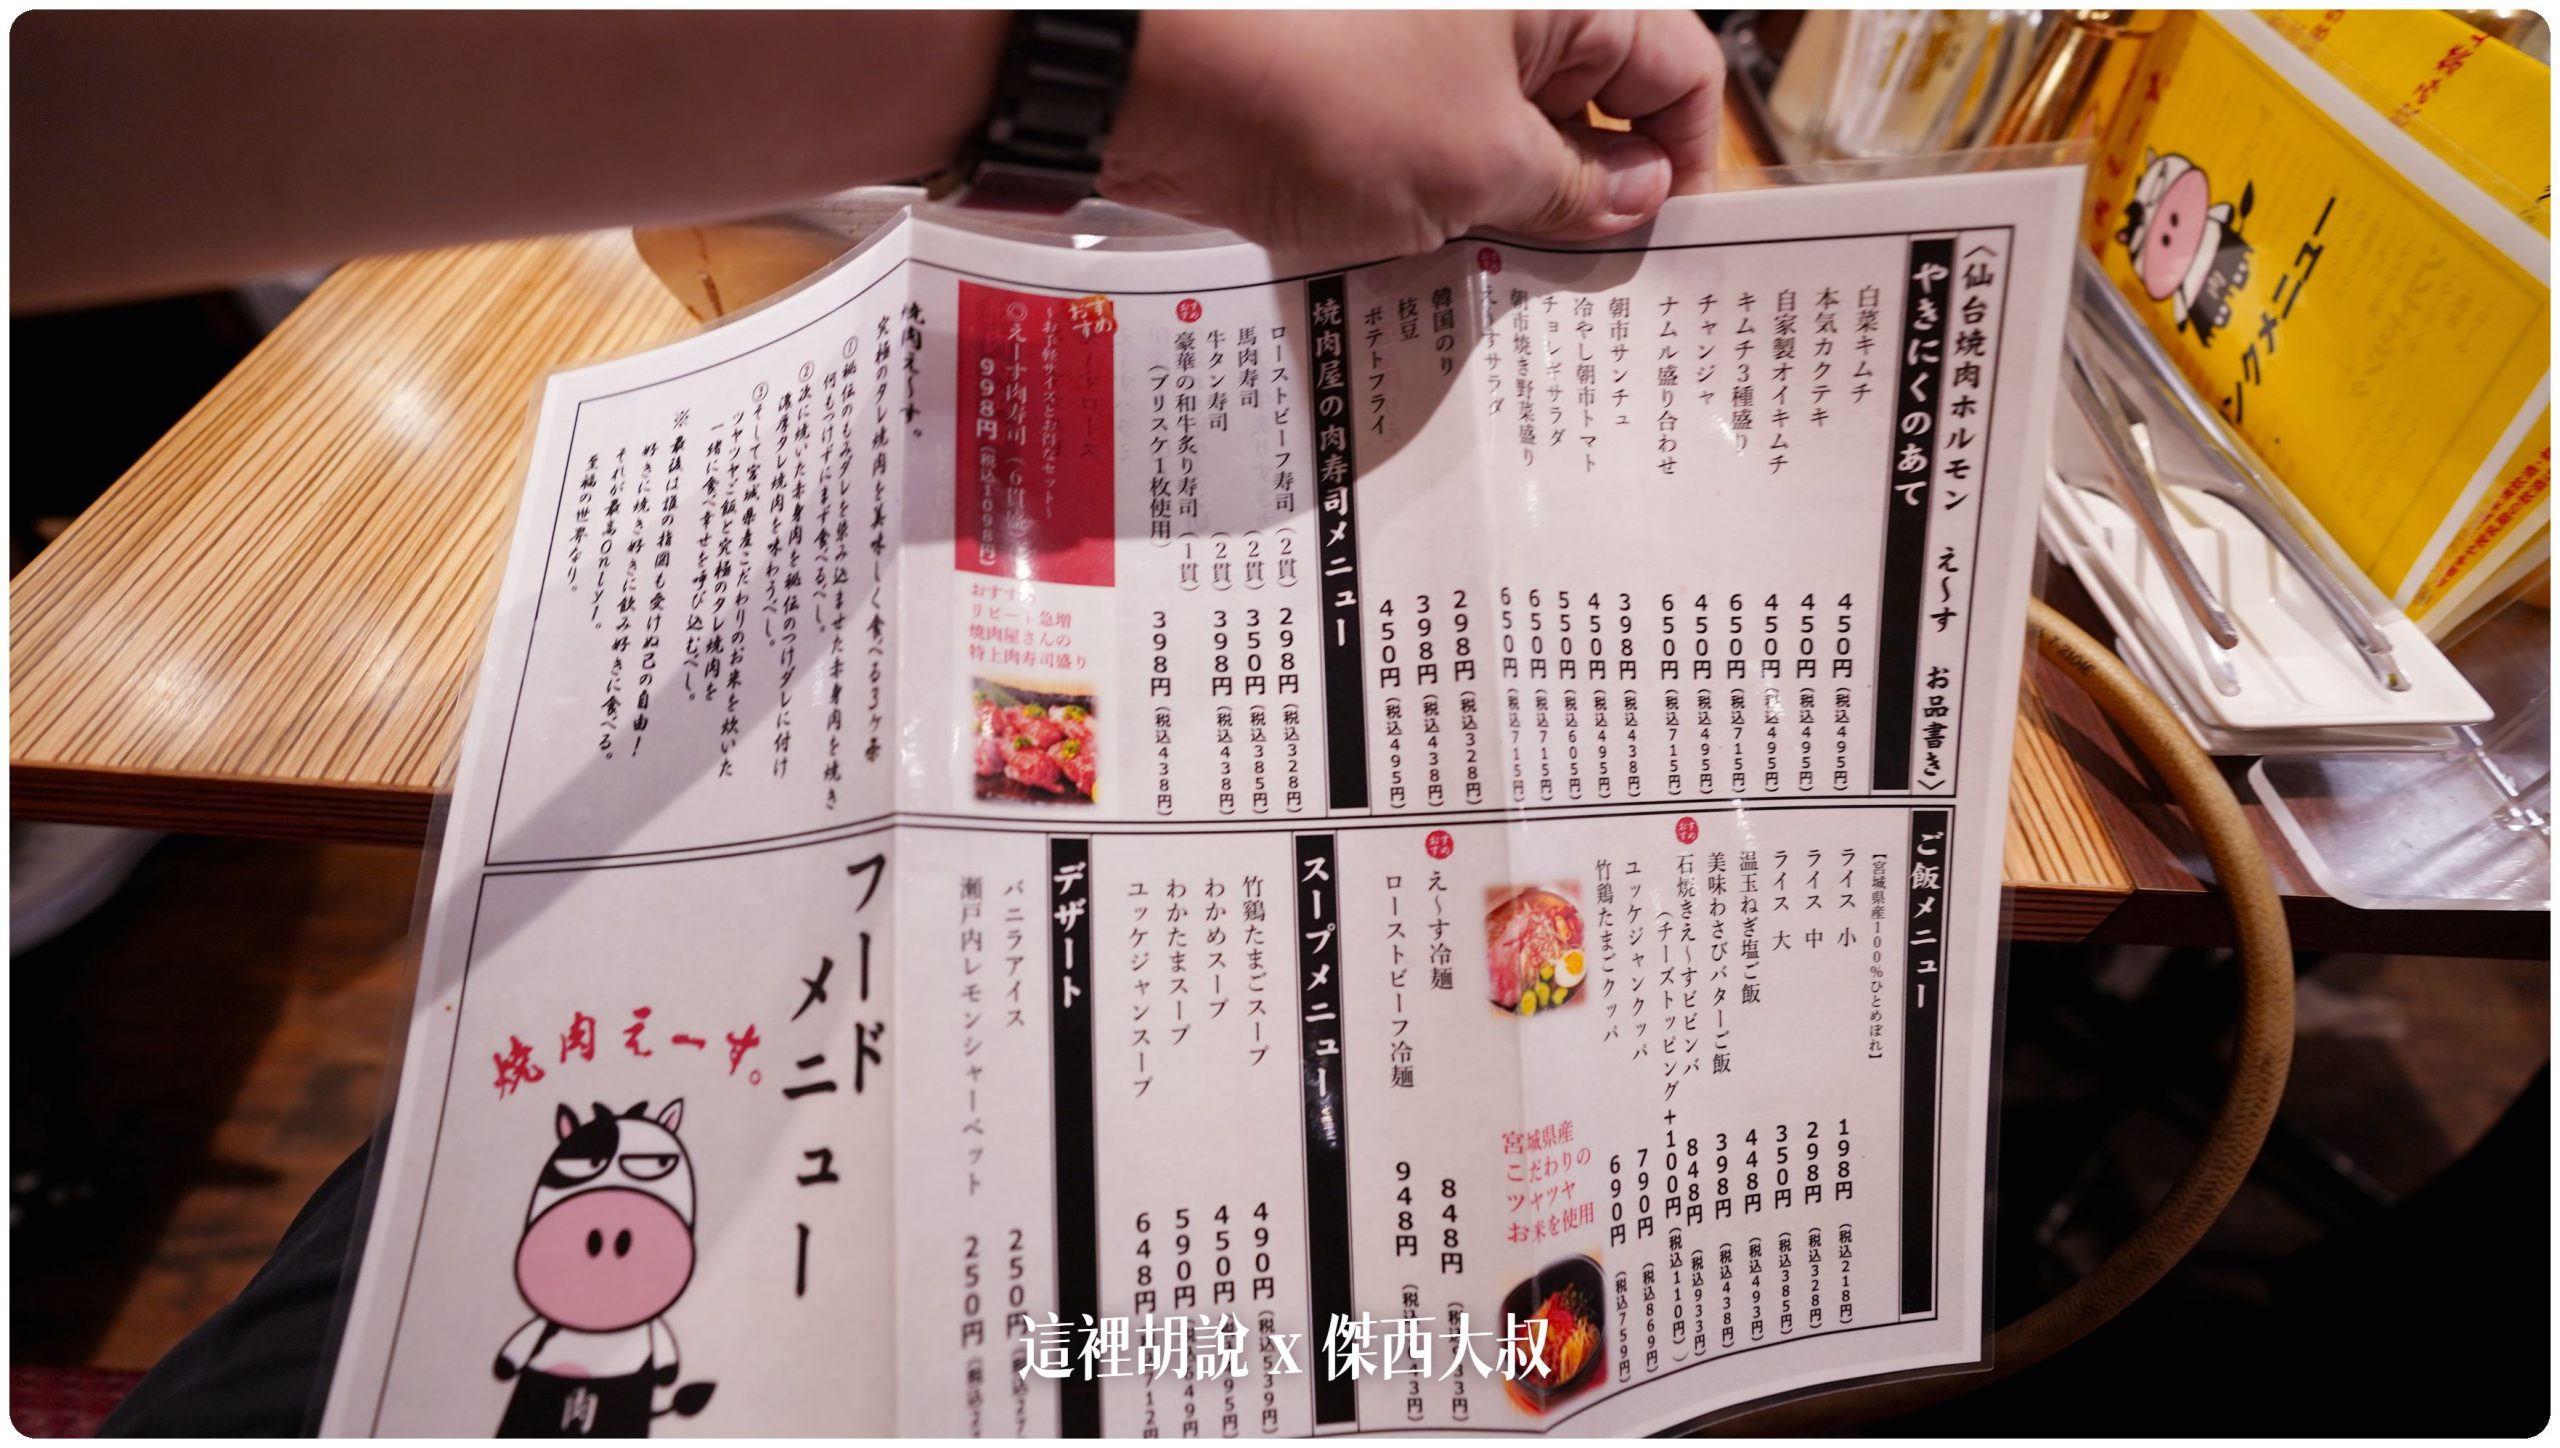 〈仙台焼肉ホルモン え〜す お品書き〉
やきにくのあて
白菜キムチ 450円(税込495円)
本気カクテキ 450円(税込495円)
自家製オイキムチ 450円(税込495円)
キムチ3種盛り 650円(税込715円)
チャンジャ 450円(税込495円)
ナムル盛り合わせ 650円(税込715円)
朝市サンチュ 398円(税込438円)
冷やし朝市トマト 450円(税込495円)
チョレギサラダ 550円(税込605円)
朝市焼き野菜盛り 650円(税込715円)
おすすめ
え〜すサラダ 650円(税込715円)
韓国のり 298円(税込328円)
枝豆 398円(税込438円)
ポテトフライ 450円(税込495円)
焼肉屋の肉寿司メニュー
ローストビーフ寿司(2貫) 298円(税込328円)
馬肉寿司(2貫) 350円(税込385円)
牛タン寿司(2貫) 398円(税込438円)
おすすめ
豪華の和牛炙り寿司(1貫) 398円(税込438円)
(ブリスケ1枚使用)
おすすめ
〜お手軽サイズとお得なセット〜
◎えーす肉寿司(6貫盛)
998円(税込1098円)
おすすめ
リピート急増
焼肉屋さんの
特上肉寿司盛り
焼肉え〜す。
究極のタレ焼肉を美味しく食べる3ヶ条
①秘伝のもみダレを染み込ませた赤身肉を焼き
何もつけずにまず食べるべし。
②次に焼いた赤身肉を秘伝のつけダレに付け
濃厚タレ焼肉を味わうべし。
③そして宮城県産こだわりのお米を炊いた
ツヤツヤご飯と究極のタレ焼肉を
一緒に食べ幸せを呼び込むべし。
※最後は誰の指図も受けぬ己の自由!
好きに焼き好きに飲み好きに食べる。
それが最高Only1。
至福の世界なり。
ご飯メニュー
【宮城県産100%ひとめぼれ】
ライス 小 198円(税込218円)
ライス 中 298円(税込328円)
ライス 大 350円(税込385円)
温玉ねぎ塩ご飯 448円(税込493円)
美味わさびバターご飯 398円(税込438円)
おすすめ
石焼きえ〜すビビンバ 848円(税込933円)
(チーズトッピング+100円(税込110円)
ユッケジャンクッパ 790円(税込869円)
竹鶏たまごクッパ 690円(税込759円)
宮城県産
こだわりの
ツヤツヤ
お米を使用
おすすめ
え〜す冷麺 848円
ローストビーフ冷麺 948円
スープメニュー
竹鶏たまごスープ 490円(税込539円)
わかめスープ 450円
わかたまスープ 590円
ユッケジャンスープ 648円
デザート
バニラアイス 250円
瀬戸内レモンシャーベット 250円
フードメニュー
焼肉えーす。
肉
ンクメニュー
這裡胡說 x 傑西大叔